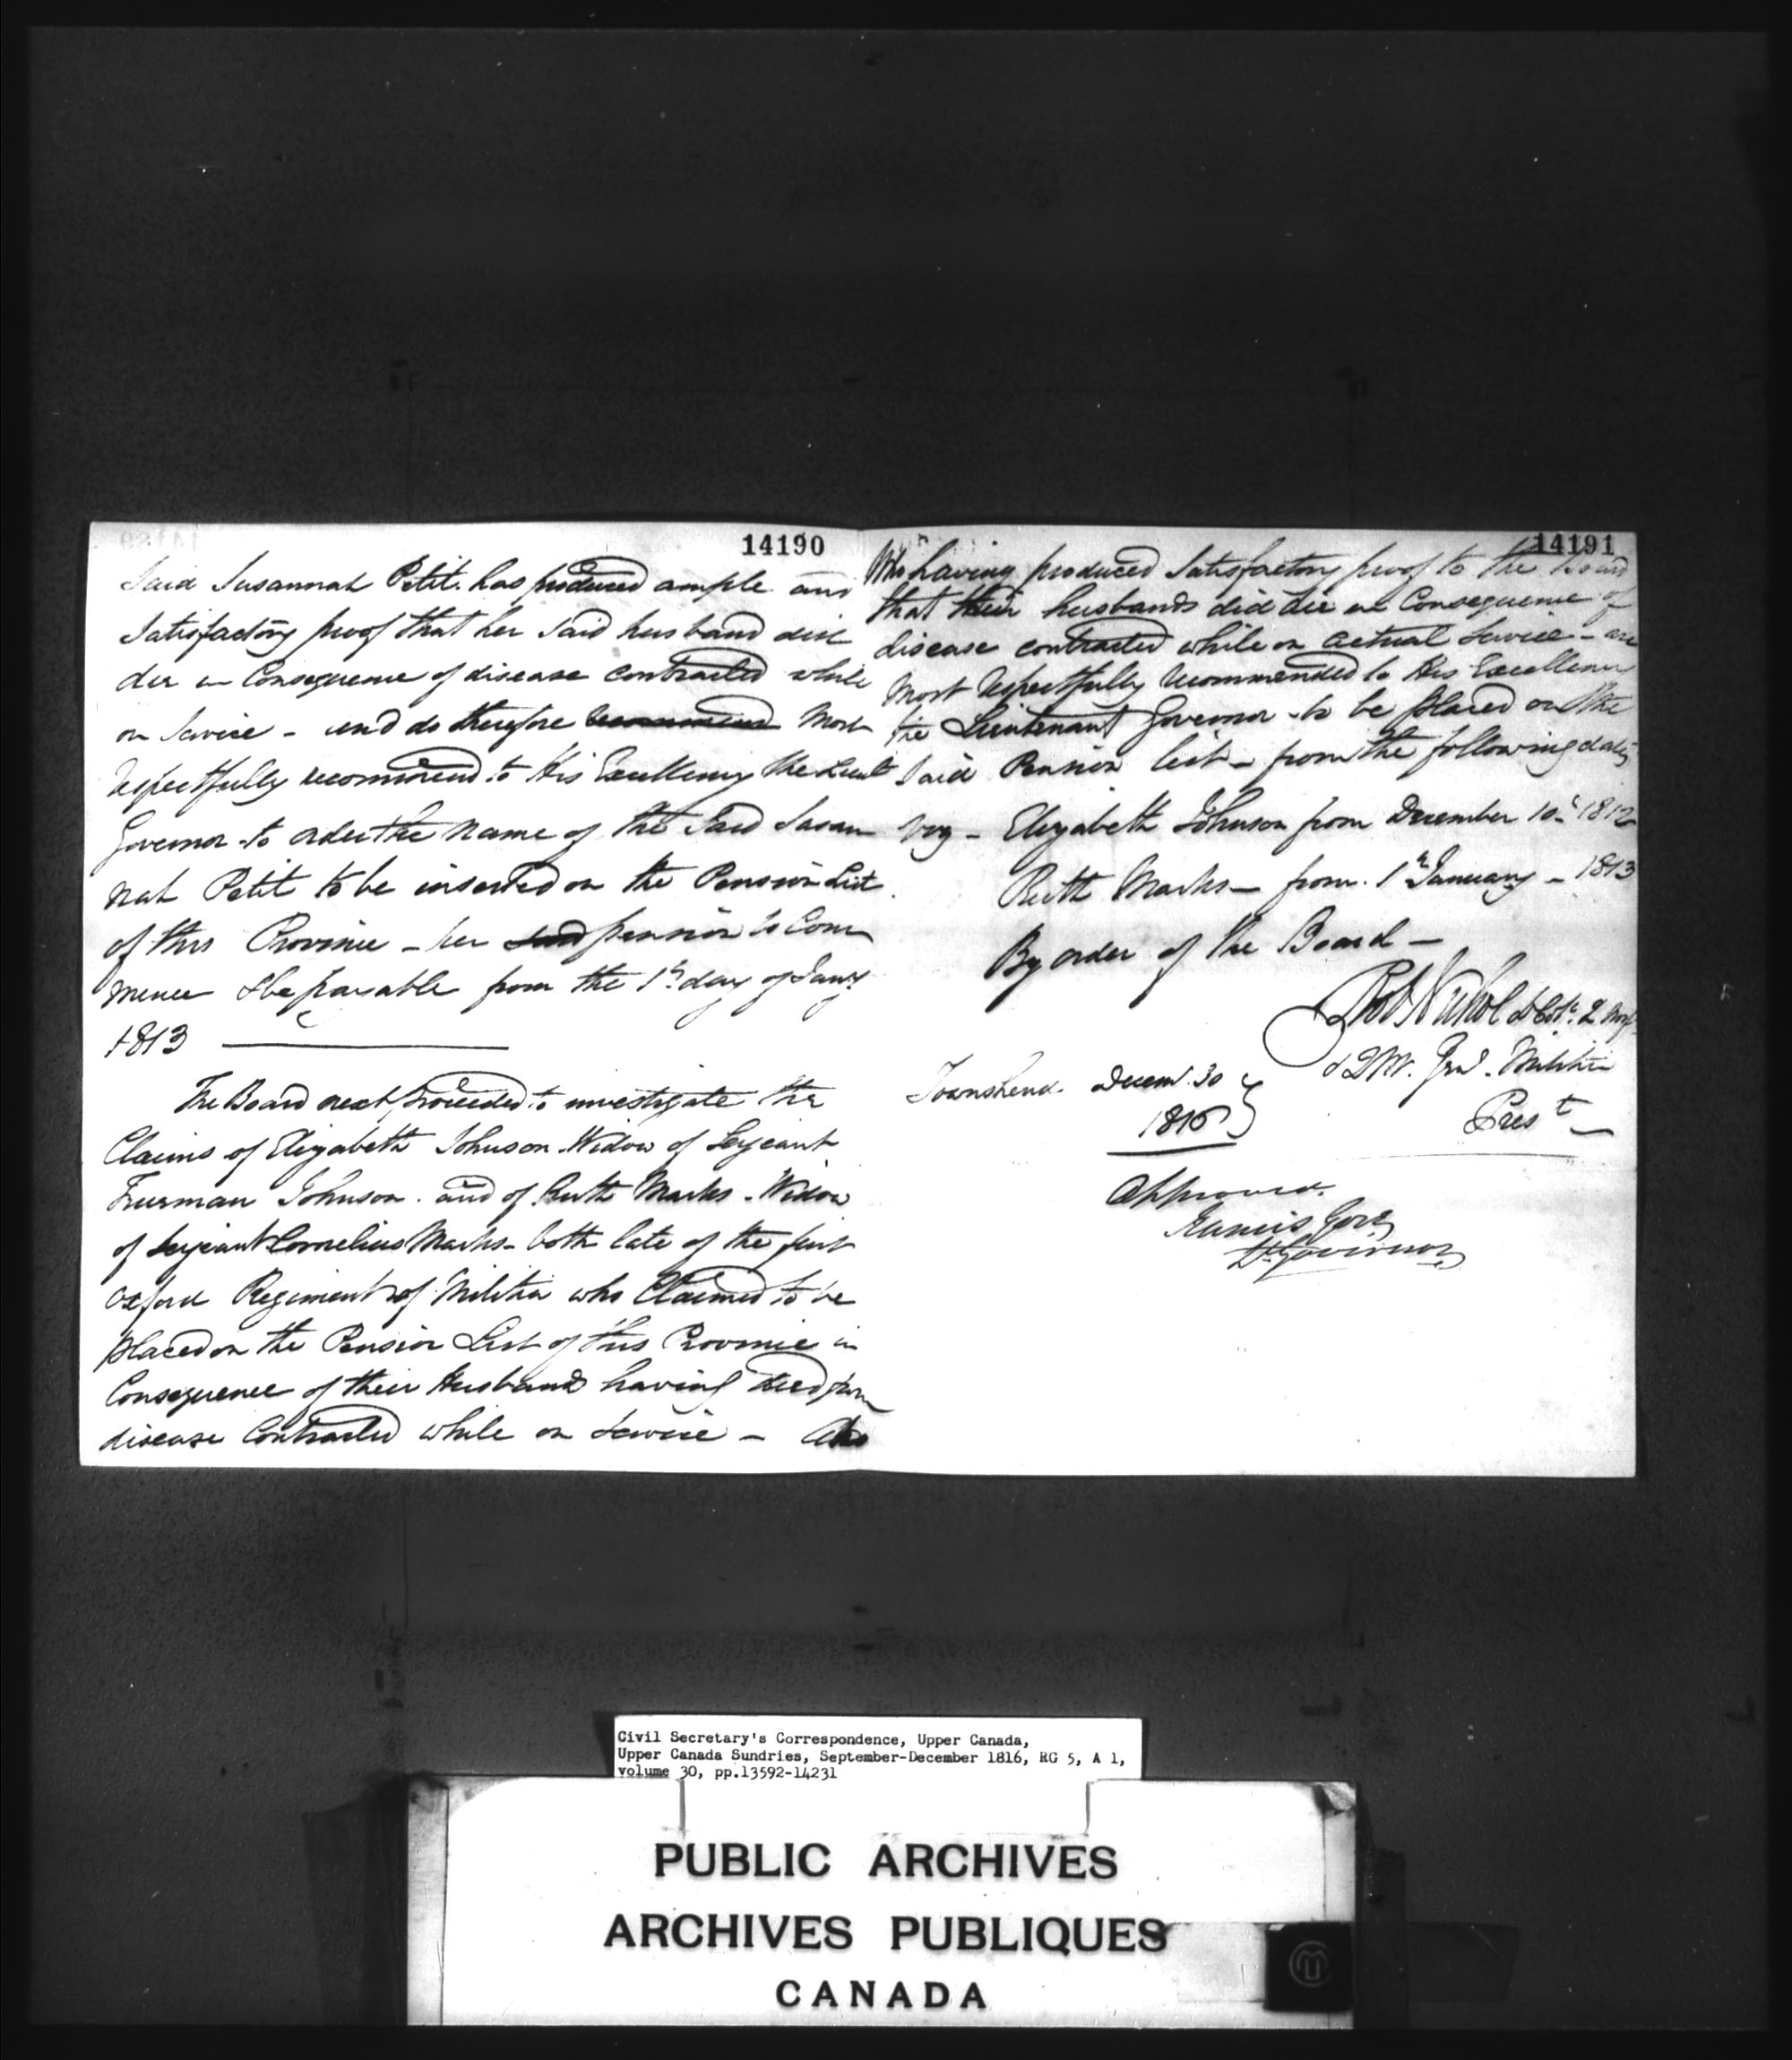 14190
Said Susannah Petit. has produced ample and
Satisfactory proof that her said husband did
die in Consequence of disease contracted while
on Service - and do therefore recommend most
respectfully recommend to His Excellency the Lieut
Governor to order the name of the Said Susan
nah Petit to be inserted on the Pension List
of this Province - her said pension to Com
mence & be payable from the 1st day of Jany
1813
The Board next proceeded to investigate the
Claims of Elizabeth Johnson Widow of Serjeant
Fuerman Johnson. and of Ruth Marks - Widow
of Serjeant Cornelius Marks - both late of the first
Oxford Regiment of Militia who Claimed to be
placed on the Pension List of this Province in
Consequence of their Husbands having died from
disease Contracted while on Service -
14191
Who having produced Satisfactory proof to the Board
that their husbands did die in Consequence of
disease contracted while on actual Service - are
Most respectfully recommended to His Excellency
the Lieutenant Governor to be placed on the
Said Pension list - from the following dates
Viz - Elizabeth Johnson from December 10th 1812
Ruth Marks - from 1st January - 1813
By order of the Board -
Rob Nichol Lt Col. 2 Norf
& QMr. Genl. Militia
Prest
Townshend. Decemr. 30
1816
Approved.
Francis Gore
Lt Governor
Civil Secretary's Correspondence, Upper Canada,
Upper Canada Sundries, September-December 1816, RG 5, A 1,
volume 30, pp.13592-14231
PUBLIC ARCHIVES
ARCHIVES PUBLIQUES
CANADA